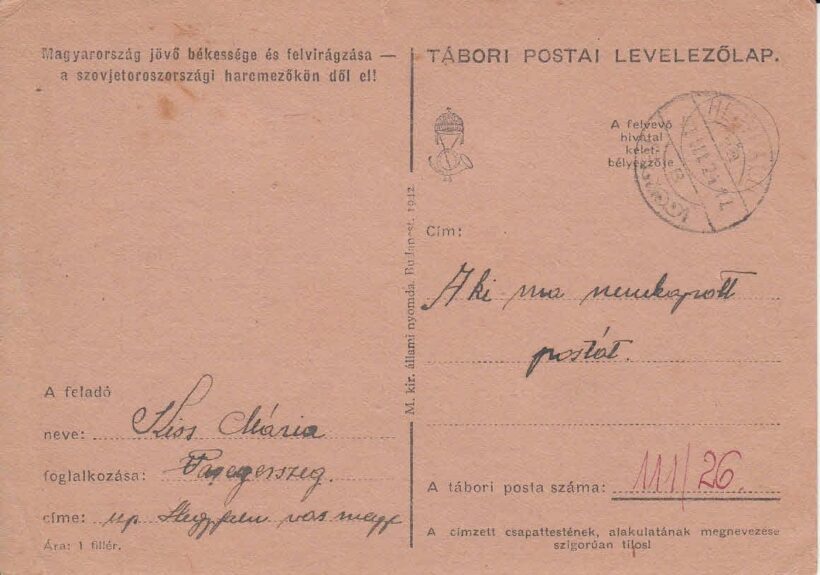 Magyarország jövő békessége és felvirágzása —
a szovjetoroszországi harcmezőkön dől el!
A feladó
neve: Kiss Mária
foglalkozása:
címe: up vas
Ára: 1 fillér.
M. kir. állami nyomda. Budapest. 1942
TÁBORI POSTAI LEVELEZŐLAP.
A felvevő
hivatal
kelet-
bélyegzője
Cím:
Aki ma nemkapott
postát.
A tábori posta száma: 111/26.
A címzett csapattestének, alakulatának megnevezése
szigorúan tilos!